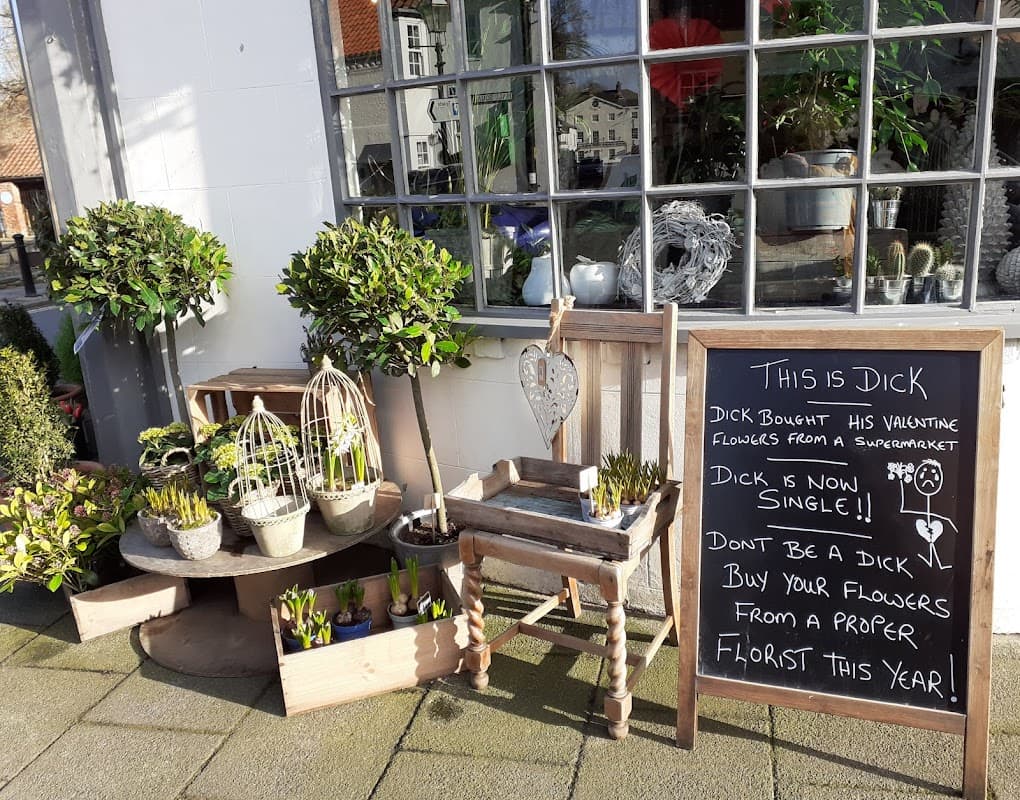 THIS IS DICK
DICK BOUGHT HIS VALENTINE
FLOWERS FROM A SUPERMARKET
DICK IS NOW
SINGLE!!
DONT BE A DICK
BUY YOUR FLOWERS
FROM A PROPER
FLORIST THIS YEAR!